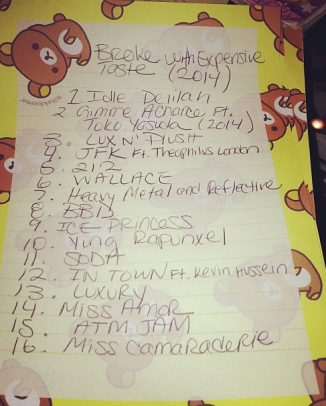 Broke with Expensive
Taste (2014)
1 Idle Delilah
2 Gimme A Chance Ft.
Toko Yasuda (2014)
3. LUX N' Plush
4. JFK Ft. Theophilus London
5. 212
6. WALLACE
7. Heavy Metal and Reflective
8. BBD
9. ICE Princess
10. Yung Rapunxel
11. SODA
12. IN TOWN Ft. Kevin Hussein
13. LUXURY
14. Miss Amor
15. ATM JAM
16. Miss Camaraderie